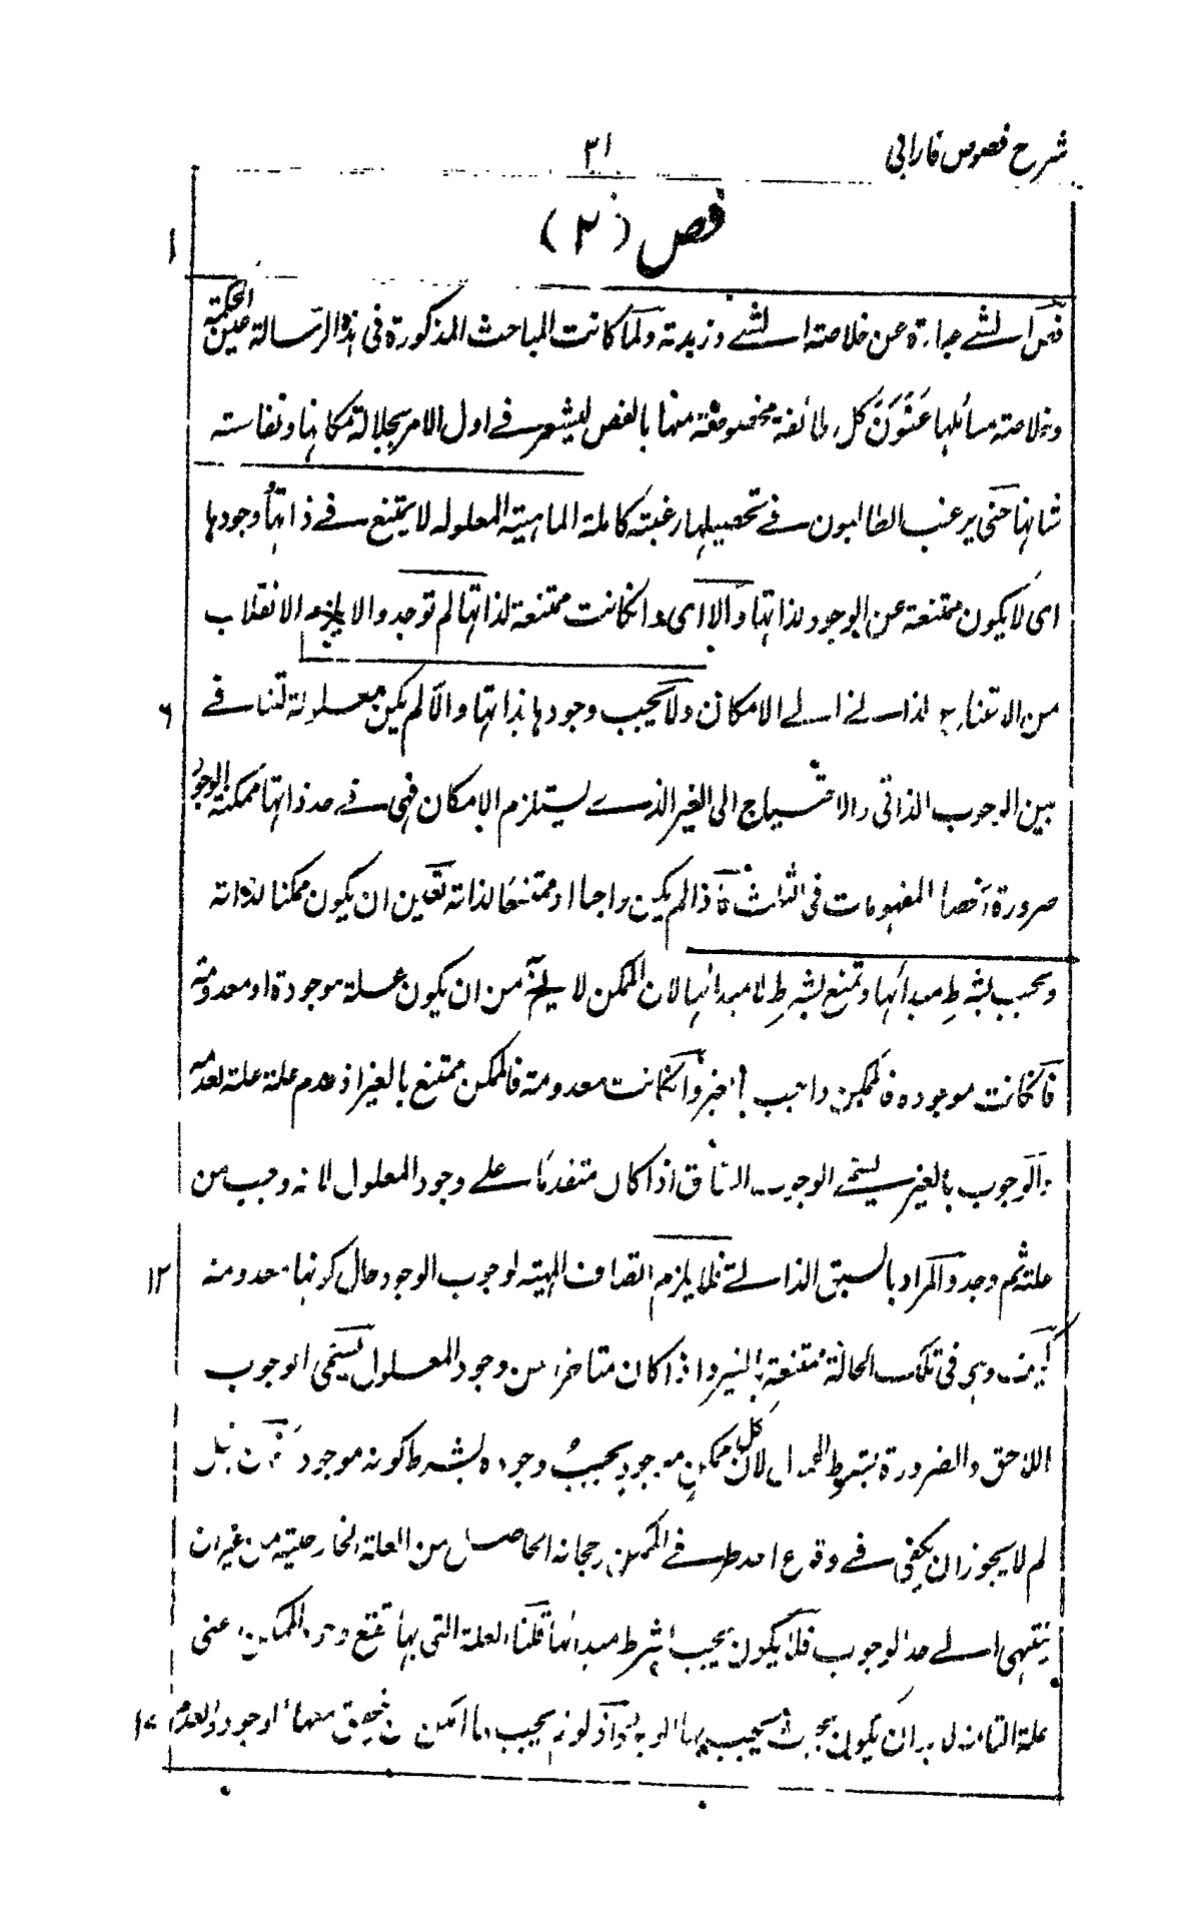 شرح فصوص فارابی
۳۱
فص (۲)
۱
فص الشے عبارة عن خلاصته الشے وزبدته ولما كانت المباحث المذكورة فى هذه الرسالة عين الحكمة
وخلاصته مسائلها عَنْوَنَ كل طائفة مخصوصة منها بالفص ليشعر فے اول الامر بجلالة مكانها ونفاسته
شانها حتى يرغب الطالبون فے تحصيلها رغبته كاملة الماهيته المعلوله لا يمتنع فے ذاتها وجودها
اى لا يكون ممتنعة عن الوجود لذاتها والا اى وانكانت ممتنعة لذاتها لم توجد والا يلزم الانقلاب
۶
من الامتناع الذاتے الے الامكان ولا يجب وجودها بذاتها والا لم يكن معلولة لتنافے
بين الوجوب الذاتى والاحتياج الى الغير الذے يستلزم الامكان فهى فے حد ذاتها ممكنة الوجود
ضرورة انحصار المفهومات فى الثلث فاذا لم يكن واجبا او ممتنعا لذاته تعين ان يكون ممكنا لذاته
ويجب بشرط مبدأها وتمتنع بشرط لا مبدأها لان الممكن لا يخ من ان يكون علته موجودة او معدومة
فانكانت موجوده فالممكن واجب بالغير وانكانت معدومة فالممكن ممتنع بالغير اذ عدم علة علة لعدمه
والوجوب بالغير يسمے الوجوب السابق اذا كان متقدما علے وجود المعلول لانه وجب من
۱۲
علته ثم وجد والمراد بالسبق الذاتے فلا يلزم اتصاف الماهيته لوجوب الوجود حال كونها معدومة
كيف وهى فى تلك الحالة ممتنعة بالغير واذا كان متاخرا عن وجود المعلول يسمى الوجوب
اللاحق والضرورة بشرط المحمول لان كل ممكن موجود يجب وجوده بشرط كونه موجودا فان قيل
لم لا يجوز ان يكفى فے وقوع احد طرفے الممكن رجحانه الحاصل من العلة الخارجية من غير ان
ينتهى الے حد الوجوب فلا يكون يجب بشرط مبدأها قلنا العلة التى بها تمتنع وجود الممكن اعنى
علة التامه لا بد ان يكون بحيث يجب بها الوجود اذ لو لم يجب بها امكن ان تحقق معها الوجود والعدم